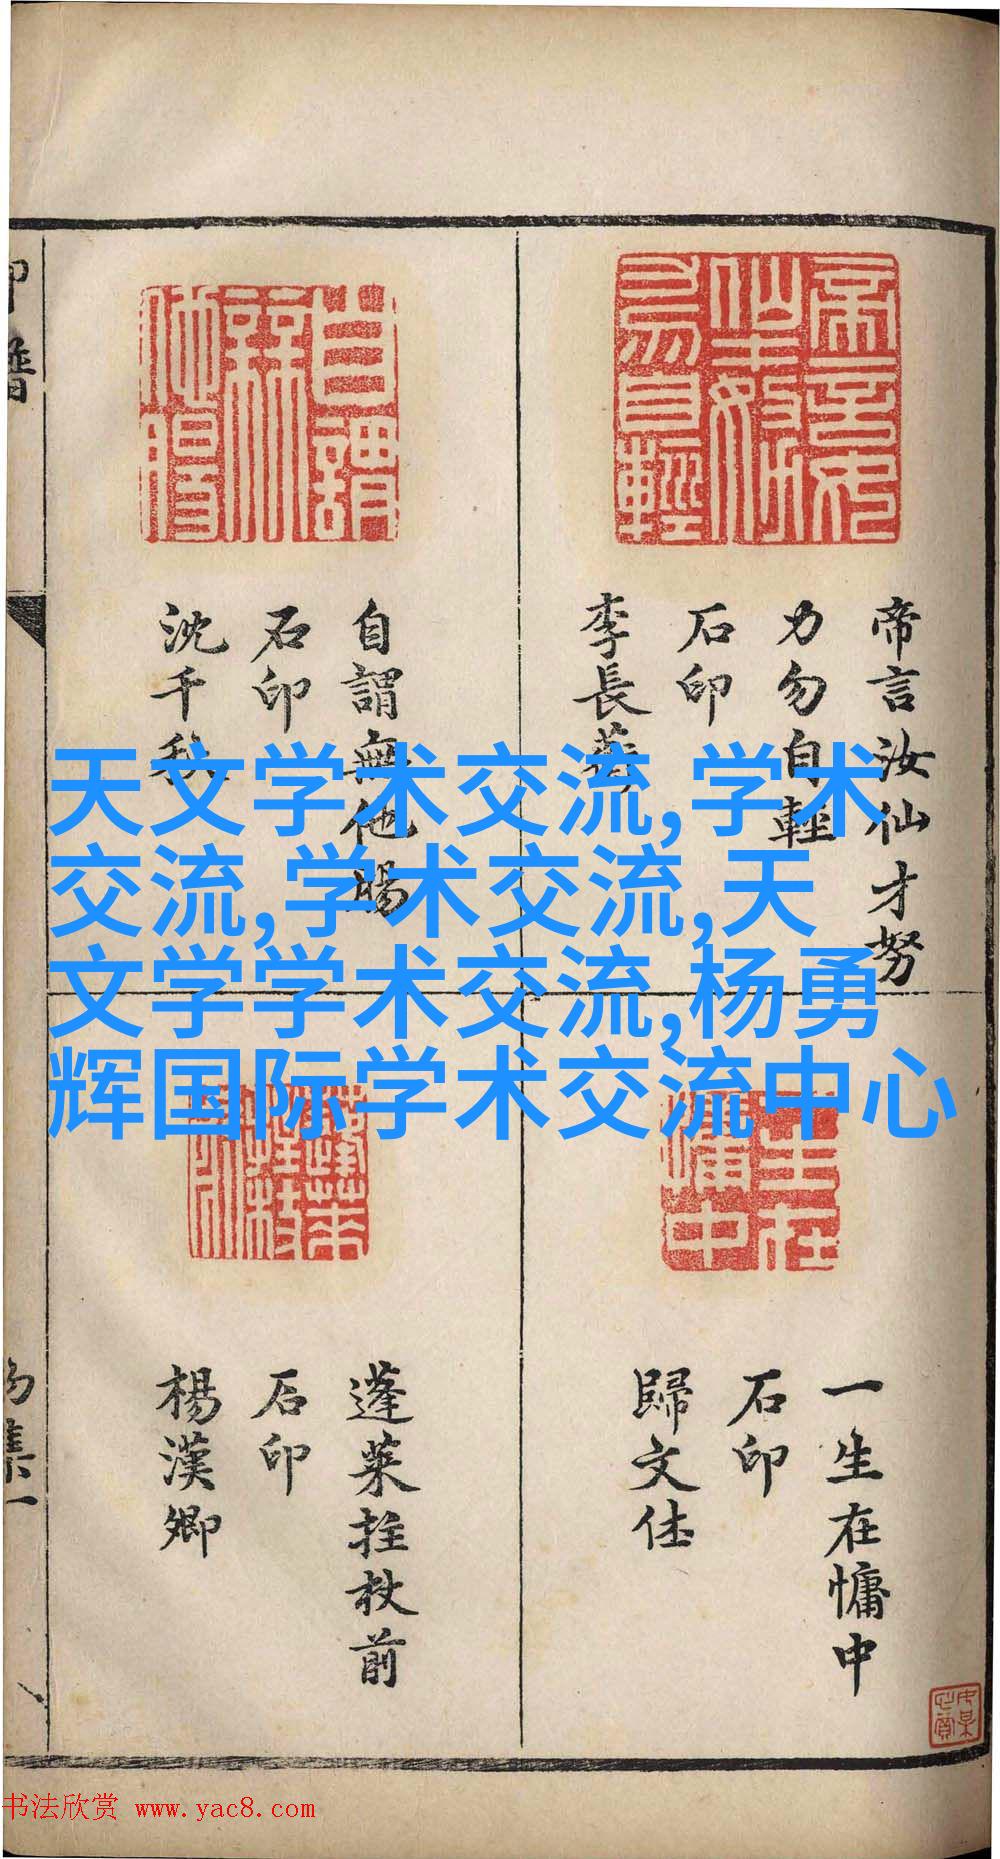 帝言汝仙才努
力勿自輕
石印
李長蘅
自謂無他腸
石印
沈千秋
天文学术交流,学术
交流,学术交流,天
文学学术交流,杨勇
辉国际学术交流中心
一生在慵中
石印
歸文休
蓬萊拄杖前
石印
楊漢卿
书法欣赏 www.yac8.com